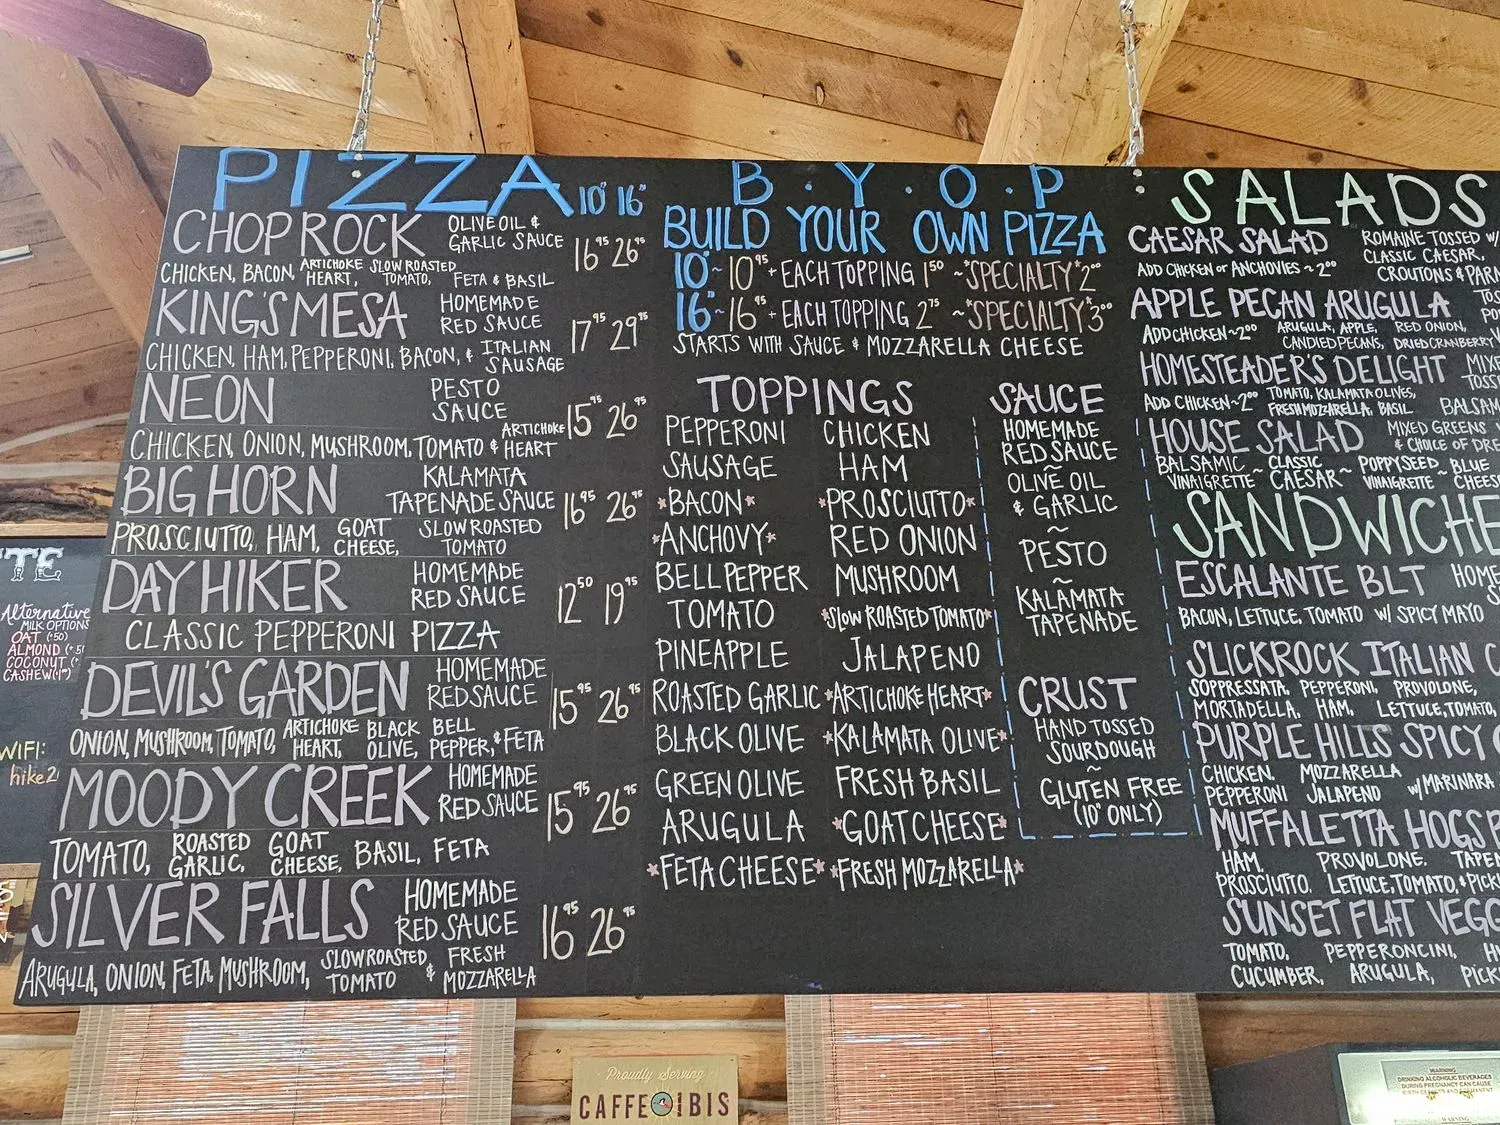 PIZZA 10" 16"
CHOPROCK OLIVE OIL &
GARLIC SAUCE 16⁹⁵ 26⁹⁵
CHICKEN, BACON, ARTICHOKE HEART, SLOW ROASTED TOMATO, FETA & BASIL
KING'S MESA HOMEMADE
RED SAUCE 17⁹⁵ 29⁹⁵
CHICKEN, HAM, PEPPERONI, BACON, & ITALIAN SAUSAGE
NEON PESTO
SAUCE 15⁹⁵ 26⁹⁵
CHICKEN, ONION, MUSHROOM, TOMATO & ARTICHOKE HEART
BIGHORN KALAMATA
TAPENADE SAUCE 16⁹⁵ 26⁹⁵
PROSCIUTTO, HAM, GOAT CHEESE, SLOW ROASTED TOMATO
DAY HIKER HOMEMADE
RED SAUCE 12⁵⁰ 19⁹⁵
CLASSIC PEPPERONI PIZZA
DEVIL'S GARDEN HOMEMADE
RED SAUCE 15⁹⁵ 26⁹⁵
ONION, MUSHROOM, TOMATO, ARTICHOKE HEART, BLACK OLIVE, BELL PEPPER, & FETA
MOODY CREEK HOMEMADE
RED SAUCE 15⁹⁵ 26⁹⁵
TOMATO, ROASTED GARLIC, GOAT CHEESE, BASIL, FETA
SILVER FALLS HOMEMADE
RED SAUCE 16⁹⁵ 26⁹⁵
ARUGULA, ONION, FETA, MUSHROOM, SLOW ROASTED TOMATO & FRESH MOZZARELLA
B.Y.O.P
BUILD YOUR OWN PIZZA
10" ~ 10⁹⁵ + EACH TOPPING 1⁵⁰ ~ *SPECIALTY* 2⁰⁰
16" ~ 16⁹⁵ + EACH TOPPING 2⁷⁵ ~ *SPECIALTY* 3⁰⁰
STARTS WITH SAUCE & MOZZARELLA CHEESE
TOPPINGS
PEPPERONI CHICKEN
SAUSAGE HAM
*BACON* *PROSCIUTTO*
*ANCHOVY* RED ONION
BELL PEPPER MUSHROOM
TOMATO *SLOW ROASTED TOMATO*
PINEAPPLE JALAPENO
ROASTED GARLIC *ARTICHOKE HEART*
BLACK OLIVE *KALAMATA OLIVE*
GREEN OLIVE FRESH BASIL
ARUGULA *GOAT CHEESE*
*FETA CHEESE* *FRESH MOZZARELLA*
SAUCE
HOMEMADE
RED SAUCE
~
OLIVE OIL
& GARLIC
~
PESTO
~
KALAMATA
TAPENADE
CRUST
HAND TOSSED
SOURDOUGH
~
GLUTEN FREE
(10" ONLY)
SALADS
CAESAR SALAD ROMAINE TOSSED W/
CLASSIC CAESAR,
ADD CHICKEN OR ANCHOVIES ~ 2⁰⁰ CROUTONS & PARM
APPLE PECAN ARUGULA
ADD CHICKEN ~ 2⁰⁰ ARUGULA, APPLE, RED ONION,
CANDIED PECANS, DRIED CRANBERRY
HOMESTEADER'S DELIGHT
ADD CHICKEN ~ 2⁰⁰ TOMATO, KALAMATA OLIVES,
FRESH MOZZARELLA, BASIL BALSAM
HOUSE SALAD MIXED GREENS
& CHOICE OF DRE
BALSAMIC VINAIGRETTE ~ CLASSIC CAESAR ~ POPPYSEED VINAIGRETTE - BLUE CHEESE
SANDWICHE
ESCALANTE BLT HOME
BACON, LETTUCE, TOMATO W/ SPICY MAYO
SLICKROCK ITALIAN C
SOPPRESSATA, PEPPERONI, PROVOLONE,
MORTADELLA, HAM, LETTUCE, TOMATO,
PURPLE HILLS SPICY
CHICKEN, MOZZARELLA
PEPPERONI JALAPENO W/ MARINARA
MUFFALETTA HOGSP
HAM, PROVOLONE, TAPEN
PROSCIUTTO, LETTUCE, TOMATO, & PICK
SUNSET FLAT VEGG
TOMATO, PEPPERONCINI, H
CUCUMBER, ARUGULA, PICK
TE
Alternative
MILK OPTIONS
OAT (.50)
ALMOND (.5
COCONUT (
CASHEW (
WIFI:
hike2
Proudly Serving
CAFFE IBIS
WARNING
DRINKING ALCOHOLIC BEVERAGES
DURING PREGNANCY CAN CAUSE
BIRTH DEFECTS AND
WARNING